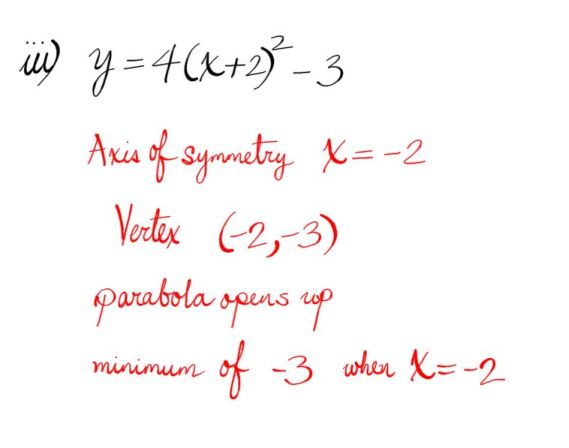 iii) y = 4(x+2)² - 3
Axis of symmetry x = -2
Vertex (-2,-3)
parabola opens up
minimum of -3 when x = -2